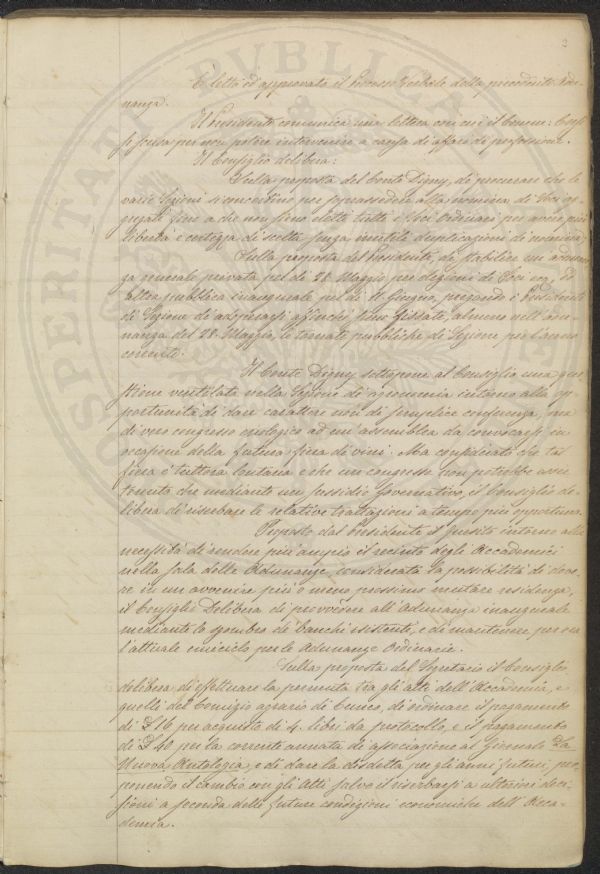 È letto ed approvato il Processo Verbale della precedente Adu-
nanza.
Il Presidente comunica una lettera con cui il
si scusa per non potere intervenire a causa di affari di professione.
Il Consiglio delibera:
Sulla proposta del Conte Digny, di procurare che le
varie Sezioni si concertino per soprassedere alla nomina di Soci ag-
gregati fino a che non sieno eletti tutti i Soci Ordinari per avere più
libertà e certezza di scelta senza inutili duplicazioni di nomina;
Sulla proposta del Presidente, di stabilire un'adunan-
za generale privata pel dì 28 Maggio per elezioni di Soci ed
altra pubblica inaugurale pel dì 11 Giugno, pregando i Presidenti
di Sezione di adoperarsi affinchè sieno fissate, almeno nell'adu-
nanza del 28 Maggio, le tornate pubbliche di Sezione per l'anno
corrente.
Il Conte Digny sottopone al Consiglio una que-
stione ventilata nella Sezione di agronomia intorno alla op-
portunità di dare carattere non di semplice conferenza, ma
di vero congresso enologico ad un'assemblea da convocarsi in
occasione della futura fiera di vini. Ma considerato che tal
fiera è tuttora lontana e che un congresso non potrebbe
tenuto che mediante un sussidio governativo, il Consiglio de-
libera di riserbare le relative trattazioni a tempo più opportuno.
Proposto dal Presidente il quesito intorno alla
necessità di rendere più ampio il recinto degli Accademici
nella sala delle Adunanze, considerata la possibilità di dove-
re in un avvenire più o meno prossimo mutare residenza,
il Consiglio Delibera di provvedere all'Adunanza inaugurale
mediante lo sgombro de' banchi esistenti, e di mantenere per ora
l'attuale emiciclo per le Adunanze Ordinarie.
Sulla proposta del Segretario il Consiglio
delibera di effettuare la permuta tra gli atti dell'Accademia, e
quelli del Comizio agrario di Cuneo, di ordinare il pagamento
di £ 16 per acquisto di 4 libri da protocollo, e il pagamento
di £ 40 per la corrente annata di associazione al Giornale La
Nuova Antologia, e di dare la disdetta per gli anni futuri, pro-
ponendo il cambio con gli Atti salvo il riserbarsi a ulteriori deci-
sioni a seconda delle future condizioni economiche dell'Acca-
demia.
PROSPERITATI PUBLICAE